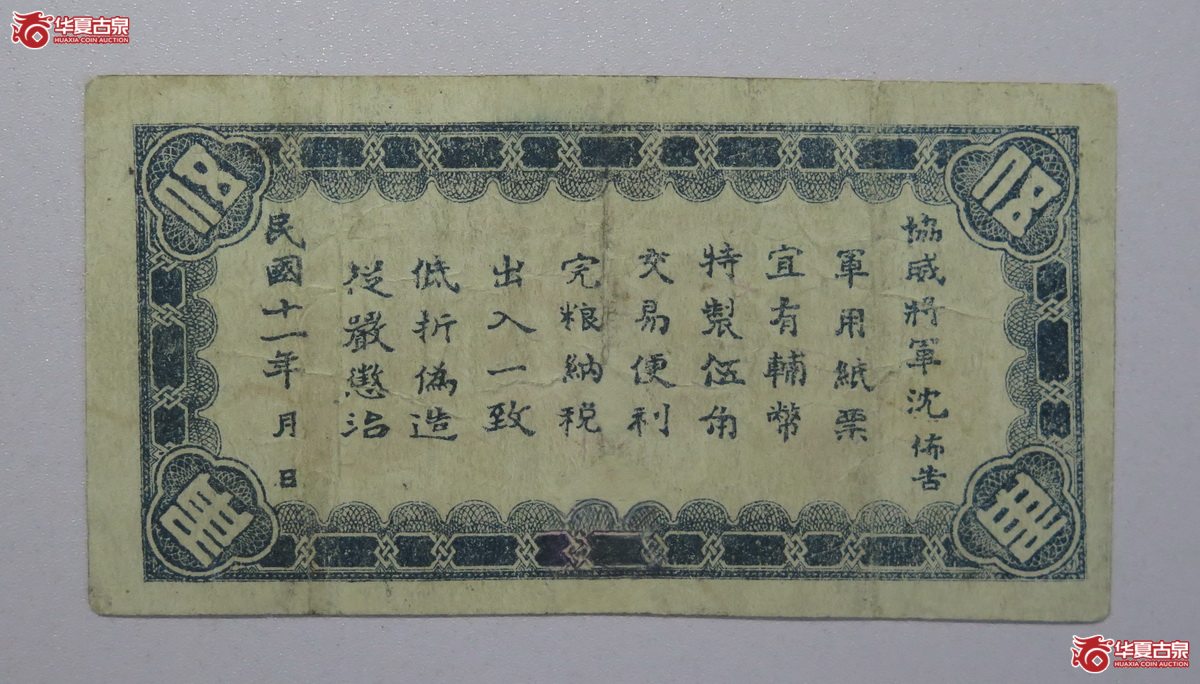 华夏古泉
HUAXIA COIN AUCTION
協威將軍沈佈告
軍用紙票
宜有輔幣
特製伍角
交易便利
完粮納税
出入一致
低折偽造
從嚴懲治
民國十一年 月 日
伍
伍
角
角
华夏古泉
HUAXIA COIN AUCTION